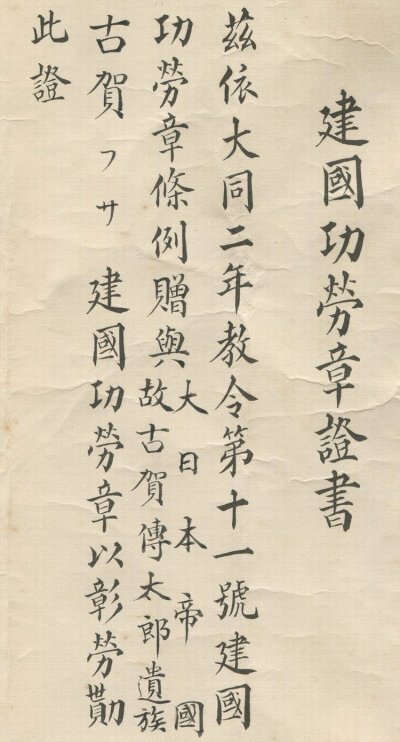 建國功勞章證書
茲依大同二年教令第十一號建國
功勞章條例贈與大日本帝國
故古賀傳太郎遺族
古賀フサ建國功勞章以彰勞勩
此證